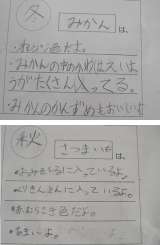 冬
みかん は、
・オレンジ色だよ。
・みかんの中のかわはえいよ
うがたくさん入ってる。
・みかんのかんずめもおいしいよ
秋
さつまいも は、
くりきんとんに入っているよ。
赤むらさき色だよ。
あまいよ。